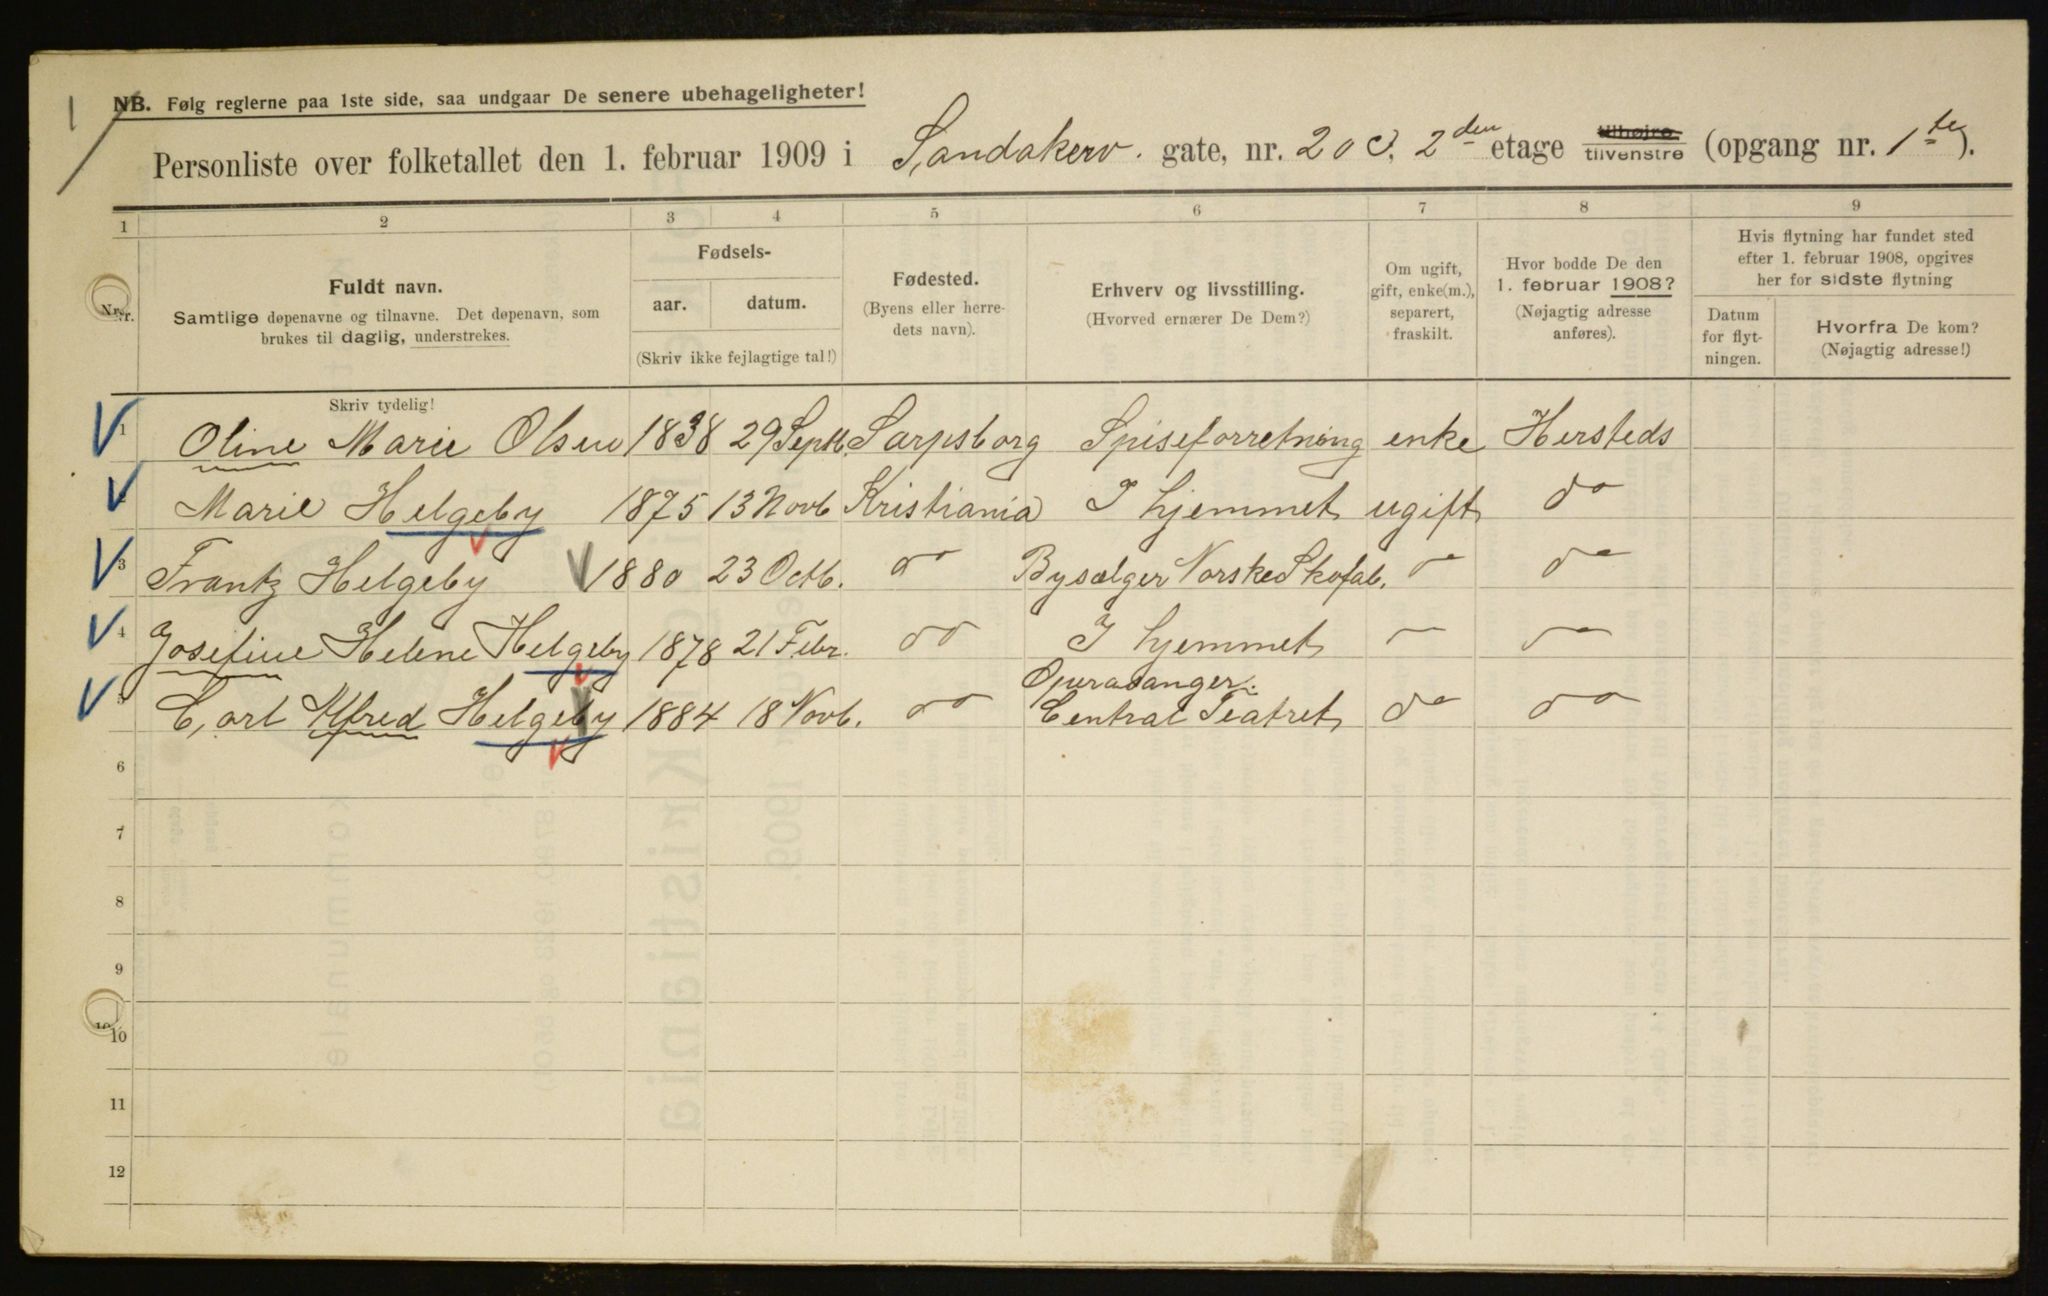 NB. Følg reglerne paa 1ste side, saa undgaar De senere ubehageligheter!
Personliste over folketallet den 1. februar 1909 i Sandakerv. gate, nr. 20 C, 2den etage tilhøjre tilvenstre (opgang nr. 1te).
1 2 3 4 5 6 7 8 9
Nr. Fuldt navn. Samtlige døpenavne og tilnavne. Det døpenavn, som brukes til daglig, understrekes.
Fødsels-
aar. datum.
(Skriv ikke fejlagtige tal!)
Fødested. (Byens eller herredets navn).
Erhverv og livsstilling. (Hvorved ernærer De Dem?)
Om ugift, gift, enke(m.), separert, fraskilt.
Hvor bodde De den 1. februar 1908? (Nøjagtig adresse anføres).
Hvis flytning har fundet sted efter 1. februar 1908, opgives her for sidste flytning
Datum for flytningen.
Hvorfra De kom? (Nøjagtig adresse!)
Skriv tydelig!
1 Oline Marie Olsen 1838 29 Septb. Sarpsborg Spiseforretning enke Hersteds
2 Marie Helgeby 1875 13 Novb Kristiania I hjemmet ugift do
3 Frantz Helgeby 1880 23 Octb. do Bysælger Norske Skofab. do do
4 Josefine Helene Helgeby 1878 21 Febr. do I hjemmet — do
5 Carl Alfred Helgeby 1884 18 Novb. do Operasanger. Central Teatret do do
6
7
8
9
10
11
12